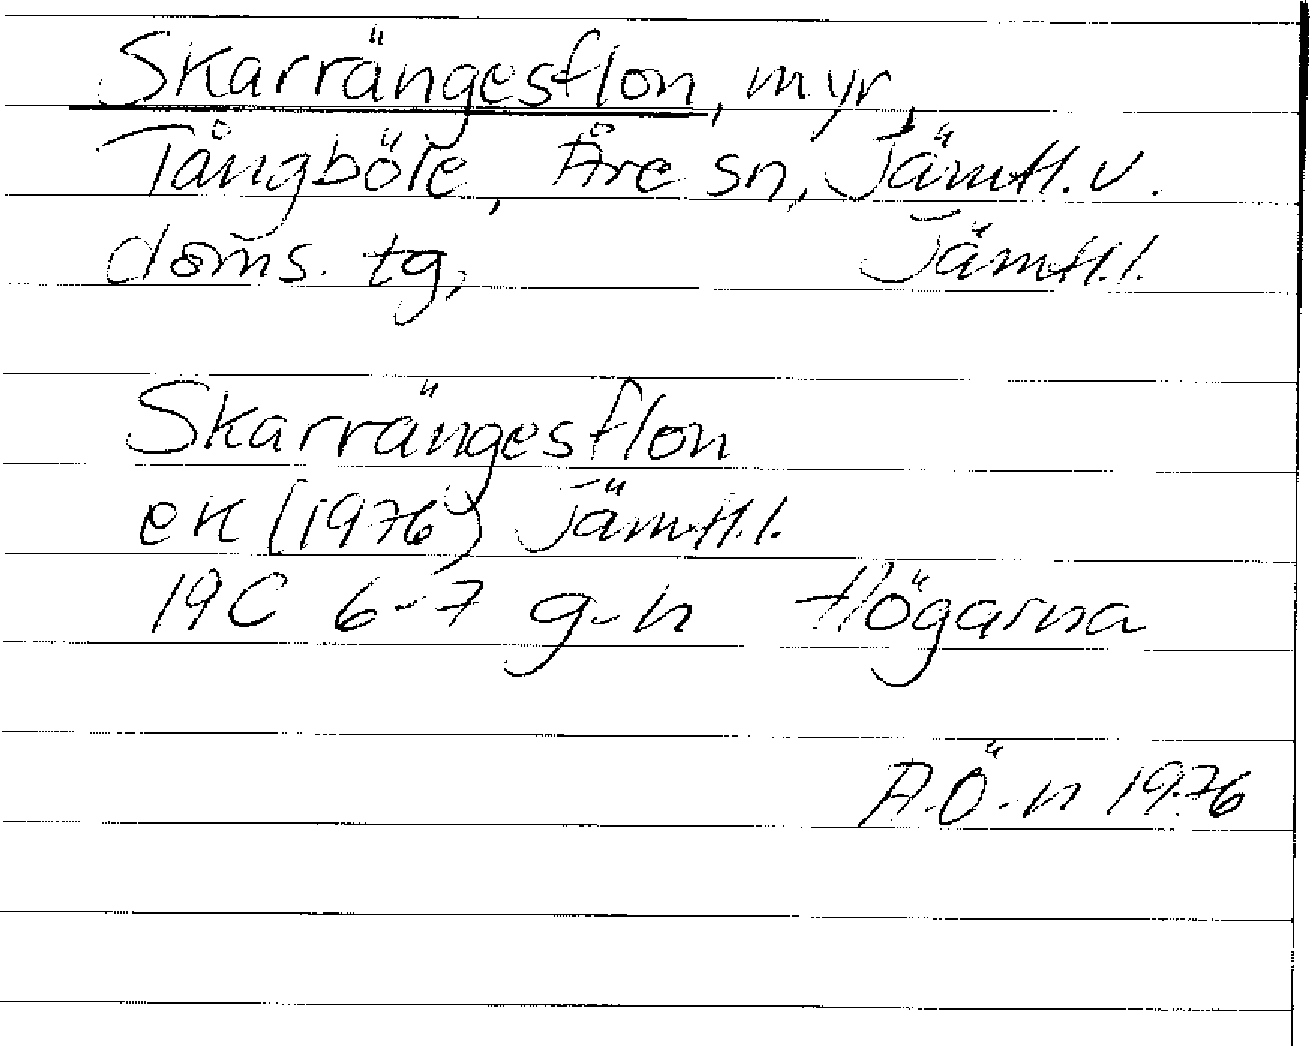 Skarrängesflon, myr,
Tångböle, Åre sn, Jämtl. v.
doms. tg, Jämtl. l.
Skarrängesflon
ek (1976) Jämtl. l.
19C 6-7 g-h Högarna
A.Ö-n 1976